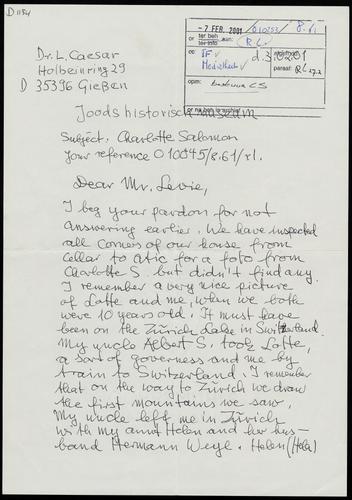 D 1184
- 7 FEB. 2001
010253/
8.61
o ter beh
o ter info
aan:
RL✓
cc
IF ✓
Mediatheek ✓
d.d.
paraaf:
opm:
CS
o na beh. naar archief
Dr. L. Caesar
Holbeinring 29
D 35396 Gießen
Joods historisch museum
Subject: Charlotte Salomon
Your reference 010045/8.61/rl.
Dear Mr. Levie,
I beg your pardon for not
answering earlier. We have inspected
all corners of our house from
cellar to atic for a foto from
Charlotte S. but didn't find any.
I remember a very nice picture
of Lotte and me, when we both
were 10 years old. It must have
been on the Zürich Lake in Switzerland.
My uncle Albert S. took Lotte,
a sort of governess and me by
train to Switzerland. I remember
that on the way to Zürich we draw
the first mountains we saw.
My uncle left me in Zürich
with my aunt Helen and her hus-
band Hermann Weyl. Helen (Hela)